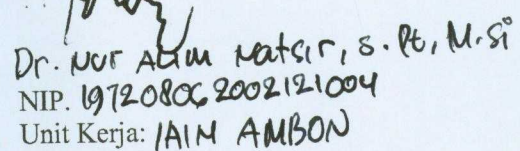 Dr. Nur Alim Natsir, S.Pt, M.Si
NIP. 197208062002121004
Unit Kerja: IAIN AMBON